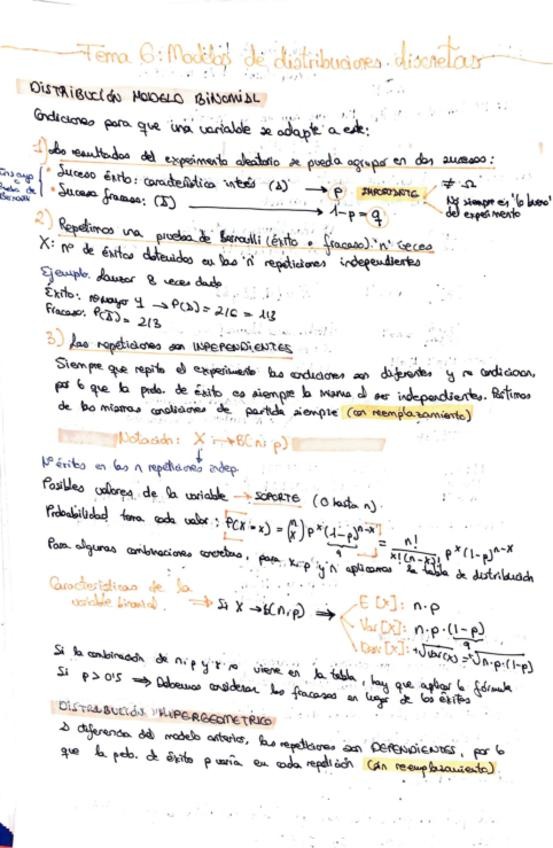 Tema 6: Modelos de distribuciones discretas
DISTRIBUCIÓN MODELO BINOMIAL
Condiciones para que una variable se adapte a este:
1) Los resultados del experimento aleatorio se pueda agrupar en dos sucesos:
Ensayo o Prueba de Bernoulli
· Suceso éxito: característica interés (A) → p IMPORTANTE
· Suceso fracaso: (Ā) → 1-p = q
No siempre es "lo bueno" del experimento
2) Repetimos una prueba de Bernoulli (éxito o fracaso) 'n' veces
X: nº de éxitos obtenidos en las 'n' repeticiones independientes
Ejemplo. Lanzar 8 veces dado
Éxito: mayor 4 → P(A) = 2/6 = 1/3
Fracaso: P(Ā) = 2/3
3) Las repeticiones son INDEPENDIENTES
Siempre que repito el experimento las condiciones son diferentes y no condicionan,
por lo que la prob. de éxito es siempre la misma al ser independientes. Partimos
de las mismas condiciones de partida siempre (con reemplazamiento)
Notación: X → B(n; p)
Nº éxitos en las n repeticiones indep.
Posibles valores de la variable → SOPORTE (0 hasta n).
Probabilidad toma cada valor: P(X = x) = (n x) p^x (1-p)^n-x = n! / x!(n-x)! p^x (1-p)^n-x
q
Para algunas combinaciones concretas, para x, p y n aplicamos la tabla de distribución
Características de la variable binomial. ⇒ Si X → b(n, p) ⇒
E [X]: n·p
Var [X]: n·p·(1-p)
q
Desv [X]: +√Var(x) = +√n·p·(1-p)
Si la combinación de n, p y x no viene en la tabla, hay que aplicar la fórmula
Si p > 0'5 ⇒ Debemos considerar los fracasos en lugar de los éxitos
DISTRIBUCIÓN HIPERGEOMETRICO
A diferencia del modelo anterior, las repeticiones son DEPENDIENTES, por lo
que la prob. de éxito p varía en cada repetición (sin reemplazamiento).